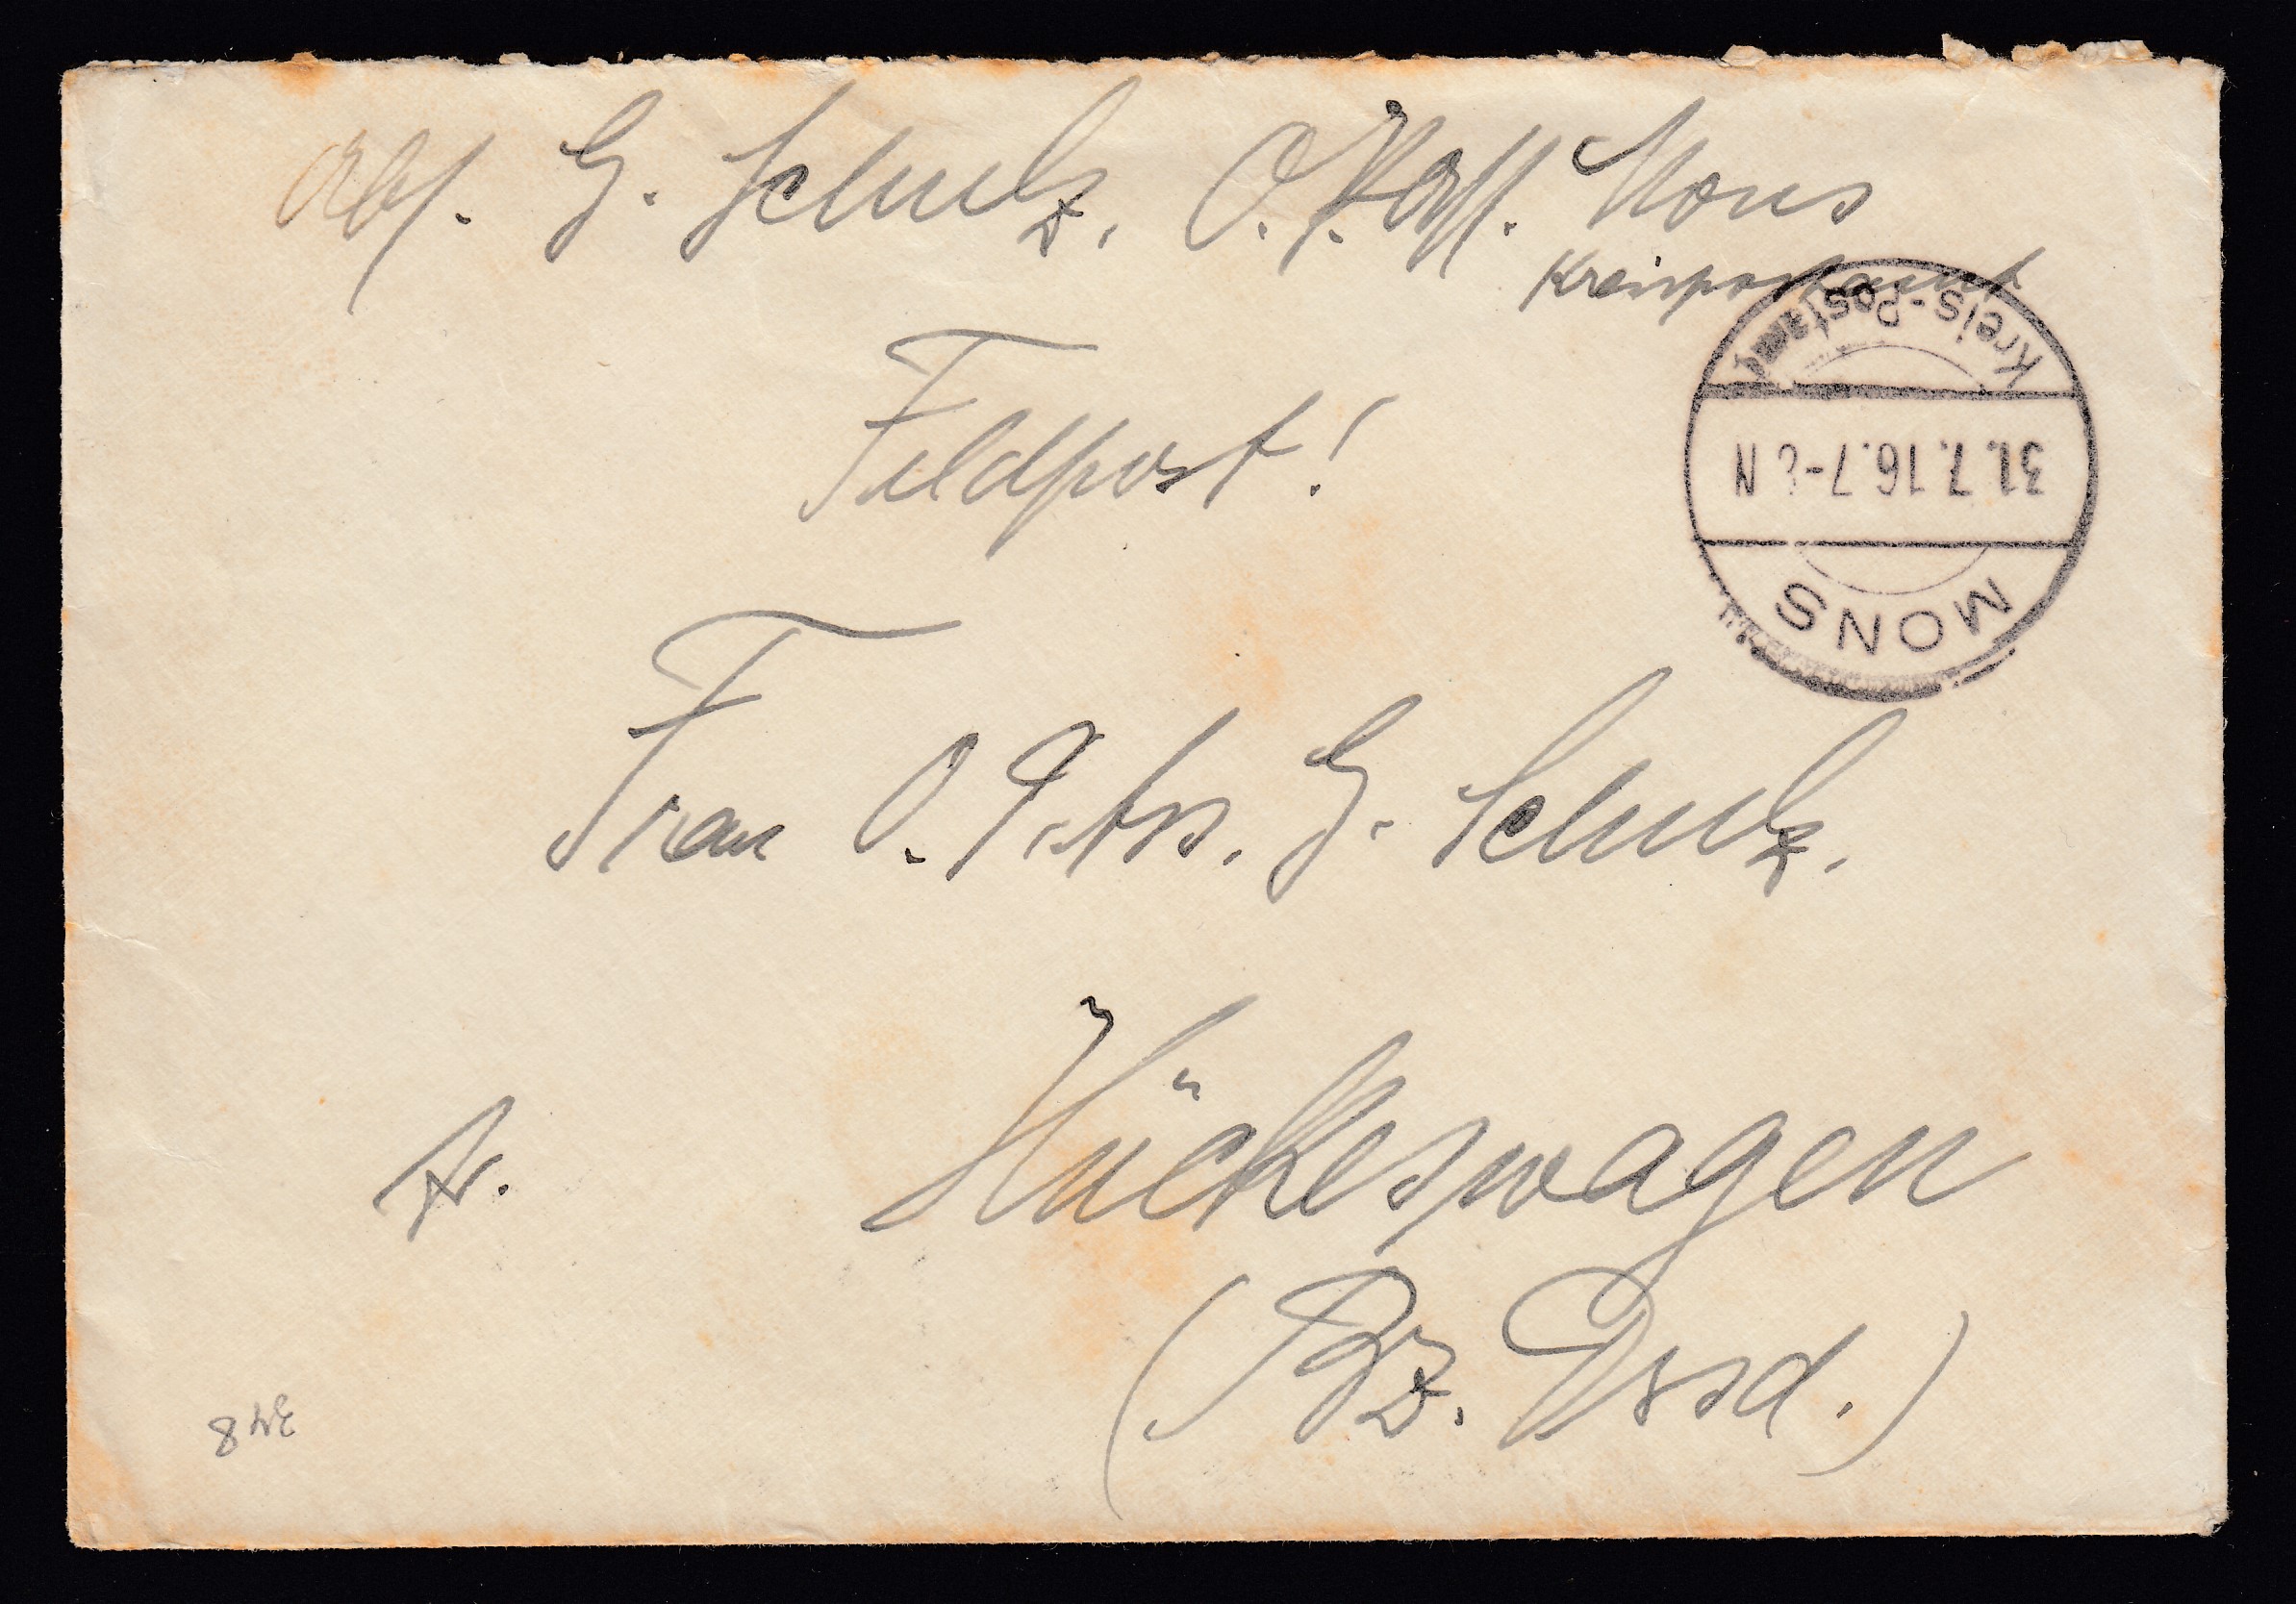 Abs. G. Schulz, O. P. Ass. Mons
Kreispostamt
Kreis-Postamt
31.7.16.7-8 N
MONS
Feldpost!
Frau O. P. Ass. G. Schulz.
Hückeswagen
(Bz. Dssd.)